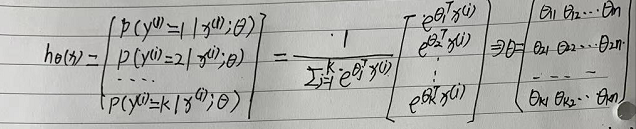 hθ(x) = [P(y⁽ⁱ⁾=1 | x⁽ⁱ⁾; θ)
P(y⁽ⁱ⁾=2 | x⁽ⁱ⁾; θ)
....
P(y⁽ⁱ⁾=k | x⁽ⁱ⁾; θ)] = 1 / Σⱼ₌₁ᵏ e^(θⱼᵀx⁽ⁱ⁾) [e^(θ₁ᵀx⁽ⁱ⁾)
e^(θ₂ᵀx⁽ⁱ⁾)
⋮
e^(θₖᵀx⁽ⁱ⁾)] ⇒ θ = [θ₁₁ θ₁₂ ... θ₁ₙ
θ₂₁ θ₂₂ ... θ₂ₙ
....
θₖ₁ θₖ₂ ... θₖₙ]